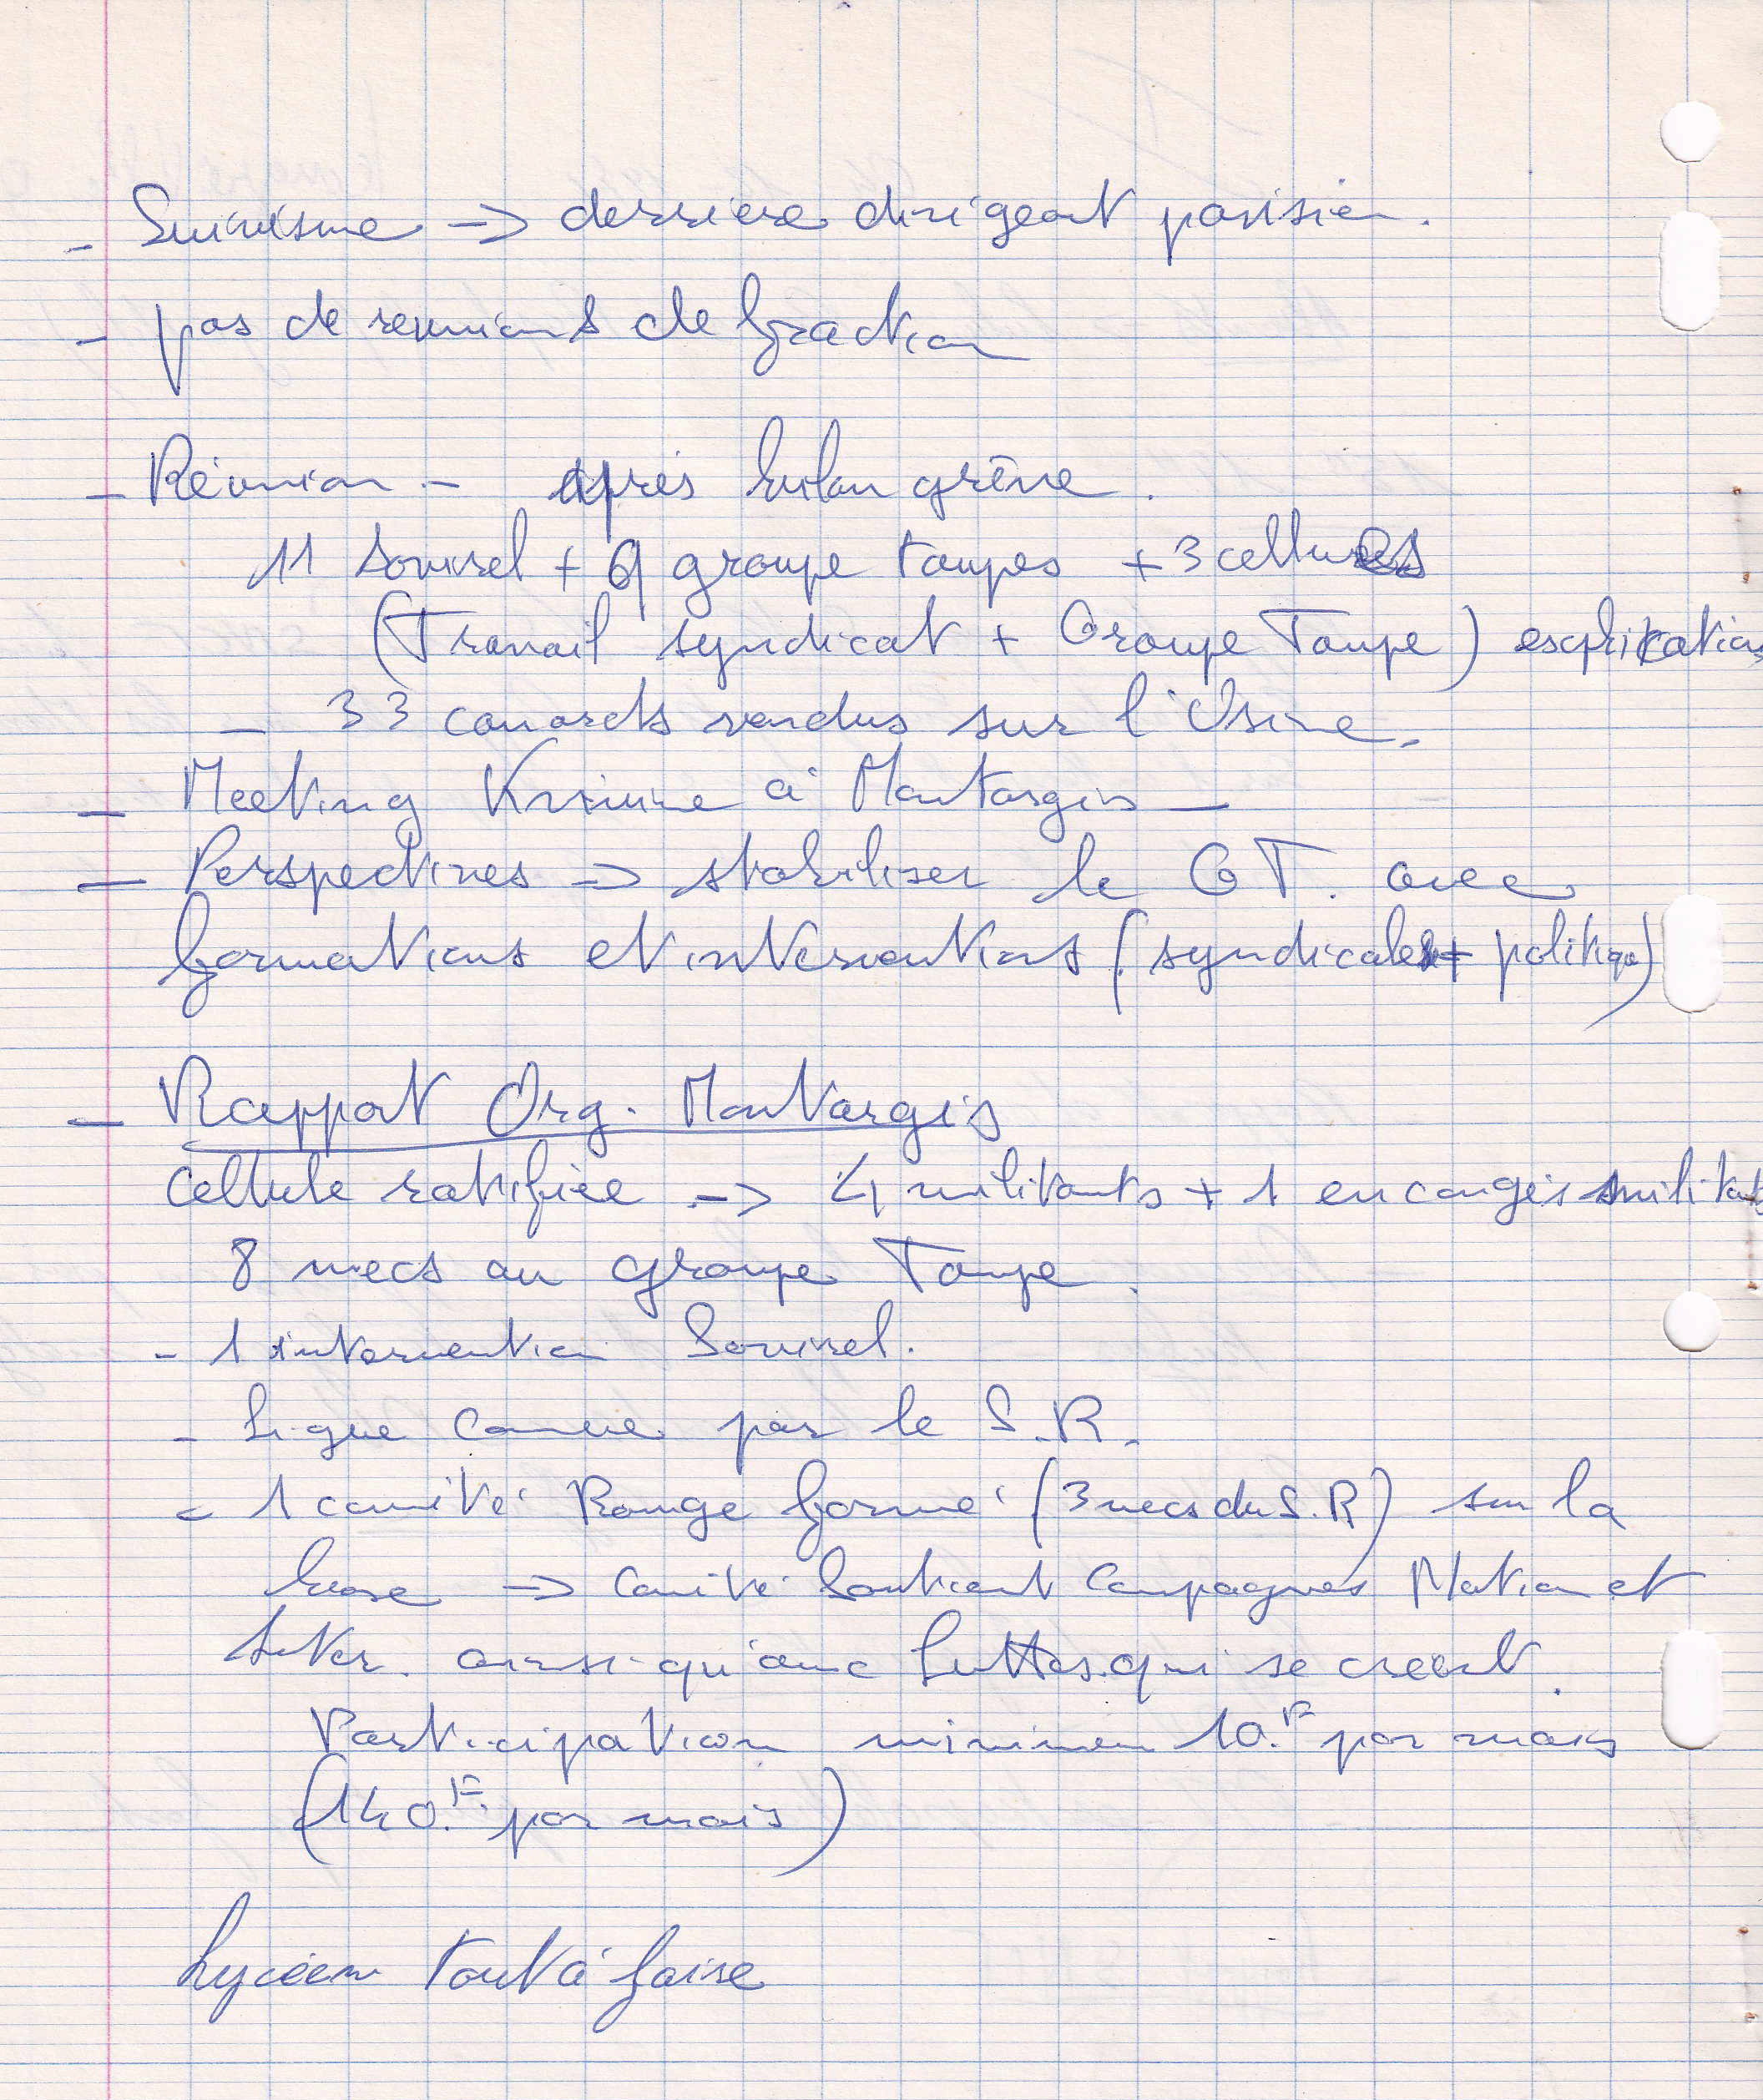 - Suivisme -> derriere dirigeant parisien.
- pas de reunions de fraction
- Réunion - après bilan grève.
11 Sourirel + 9 groupe taupes + 3 cellules
(Travail syndicat + Groupe Taupe) explication
- 33 canards vendus sur l'Usine.
- Meeting Krivine à Montargis -
- Perspectives -> stabiliser le GT. avec
formations et interventions (syndicales + politique)
- Rappot Org. Montargis
Cellule ratifiée -> 4 militants + 1 en congés militants
8 mecs au groupe Taupe.
- 1 intervention Sourirel.
- Ligue connue par le S.R.
- 1 comité Rouge formé (3 mecs du S.R) sur la
base -> Comité Soutient Campagnes Nation et
Inter. ainsi qu'aux luttes qui se creent.
Participation minimum 10.F par mois
(140.F. par mois)
Lycéen tout à faire